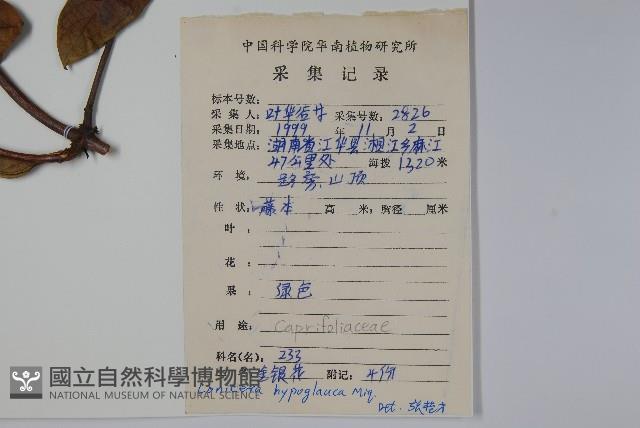 中国科学院华南植物研究所
采集记录
标本号数:
采集人: 叶华谷 采集号数: 2826
采集日期: 1999 年 11 月 2 日
采集地点: 湖南省江华县湘江乡麻江
47公里处 海拨 1320 米
环境: 路旁,山顶
性状: 藤本 高 米; 胸径 厘米
叶:
花:
果: 绿色
用途: Caprifoliaceae
科名(名): 233
金银花 附记: 4份
Lonicera hypoglauca Miq.
Det.
國立自然科學博物館
NATIONAL MUSEUM OF NATURAL SCIENCE